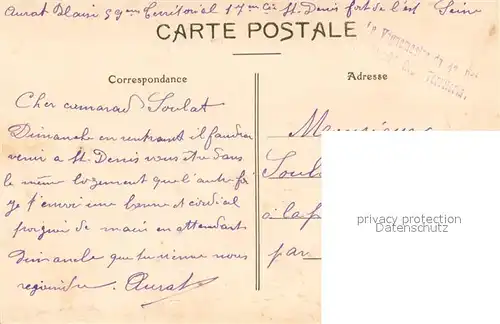 Aurat Blain 59em Territorial 17em Cie St. Denis fort de l'est Seine
CARTE POSTALE
Correspondance
Adresse
Cher camarad Soulat
Dimanche en rentrant il faudra
venir a St. Denis vous être dans
le même logement que l'autre foi
je t'envoi une bonne et cordial
poignée de main en attendant
Dimanche que tu vienne nous
rejoindre. Aurat
Monsieur
Soul
à la
par
privacy protection
www.Ansichtskartenhandel.com